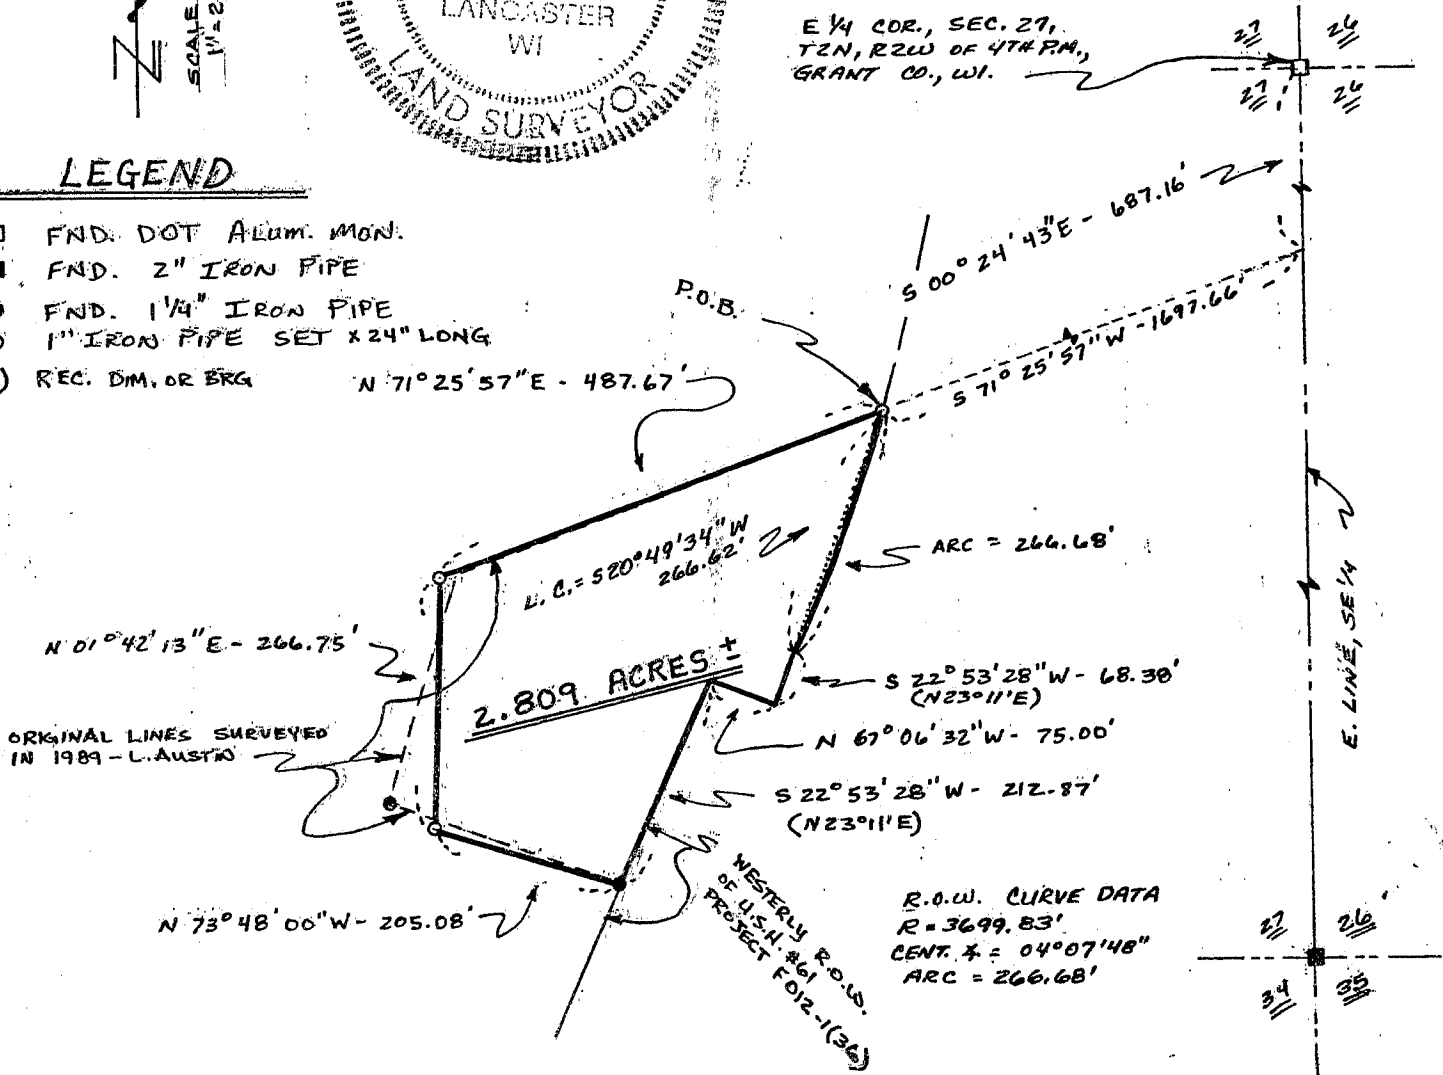 SCALE
1"=2
N
LANCASTER
WI
LAND SURVEYOR
E 1/4 COR., SEC. 27,
T2N, R2W OF 4TH P.M.,
GRANT CO., WI.
27 26
27 26
LEGEND
FND. DOT ALUM. MON.
FND. 2" IRON PIPE
FND. 1 1/4" IRON PIPE
1" IRON PIPE SET X 24" LONG
) REC. DIM. OR BRG
S 00° 24' 43" E - 687.16'
P.O.B.
S 71° 25' 57" W - 1697.66'
N 71° 25' 57" E - 487.67'
L.C. = S 20° 49' 34" W
266.62'
ARC = 266.68'
N 01° 42' 13" E - 266.75'
2.809 ACRES ±
S 22° 53' 28" W - 68.38'
(N23°11'E)
N 67° 06' 32" W - 75.00'
ORIGINAL LINES SURVEYED
IN 1989 - L. AUSTIN
S 22° 53' 28" W - 212.87'
(N23°11'E)
E. LINE, SE 1/4
N 73° 48' 00" W - 205.08'
WESTERLY R.O.W.
OF U.S.H. #61
PROJECT F012-1(36)
R.O.W. CURVE DATA
R = 3699.83'
CENT. ∡ = 04°07'48"
ARC = 266.68'
27 26
34 35